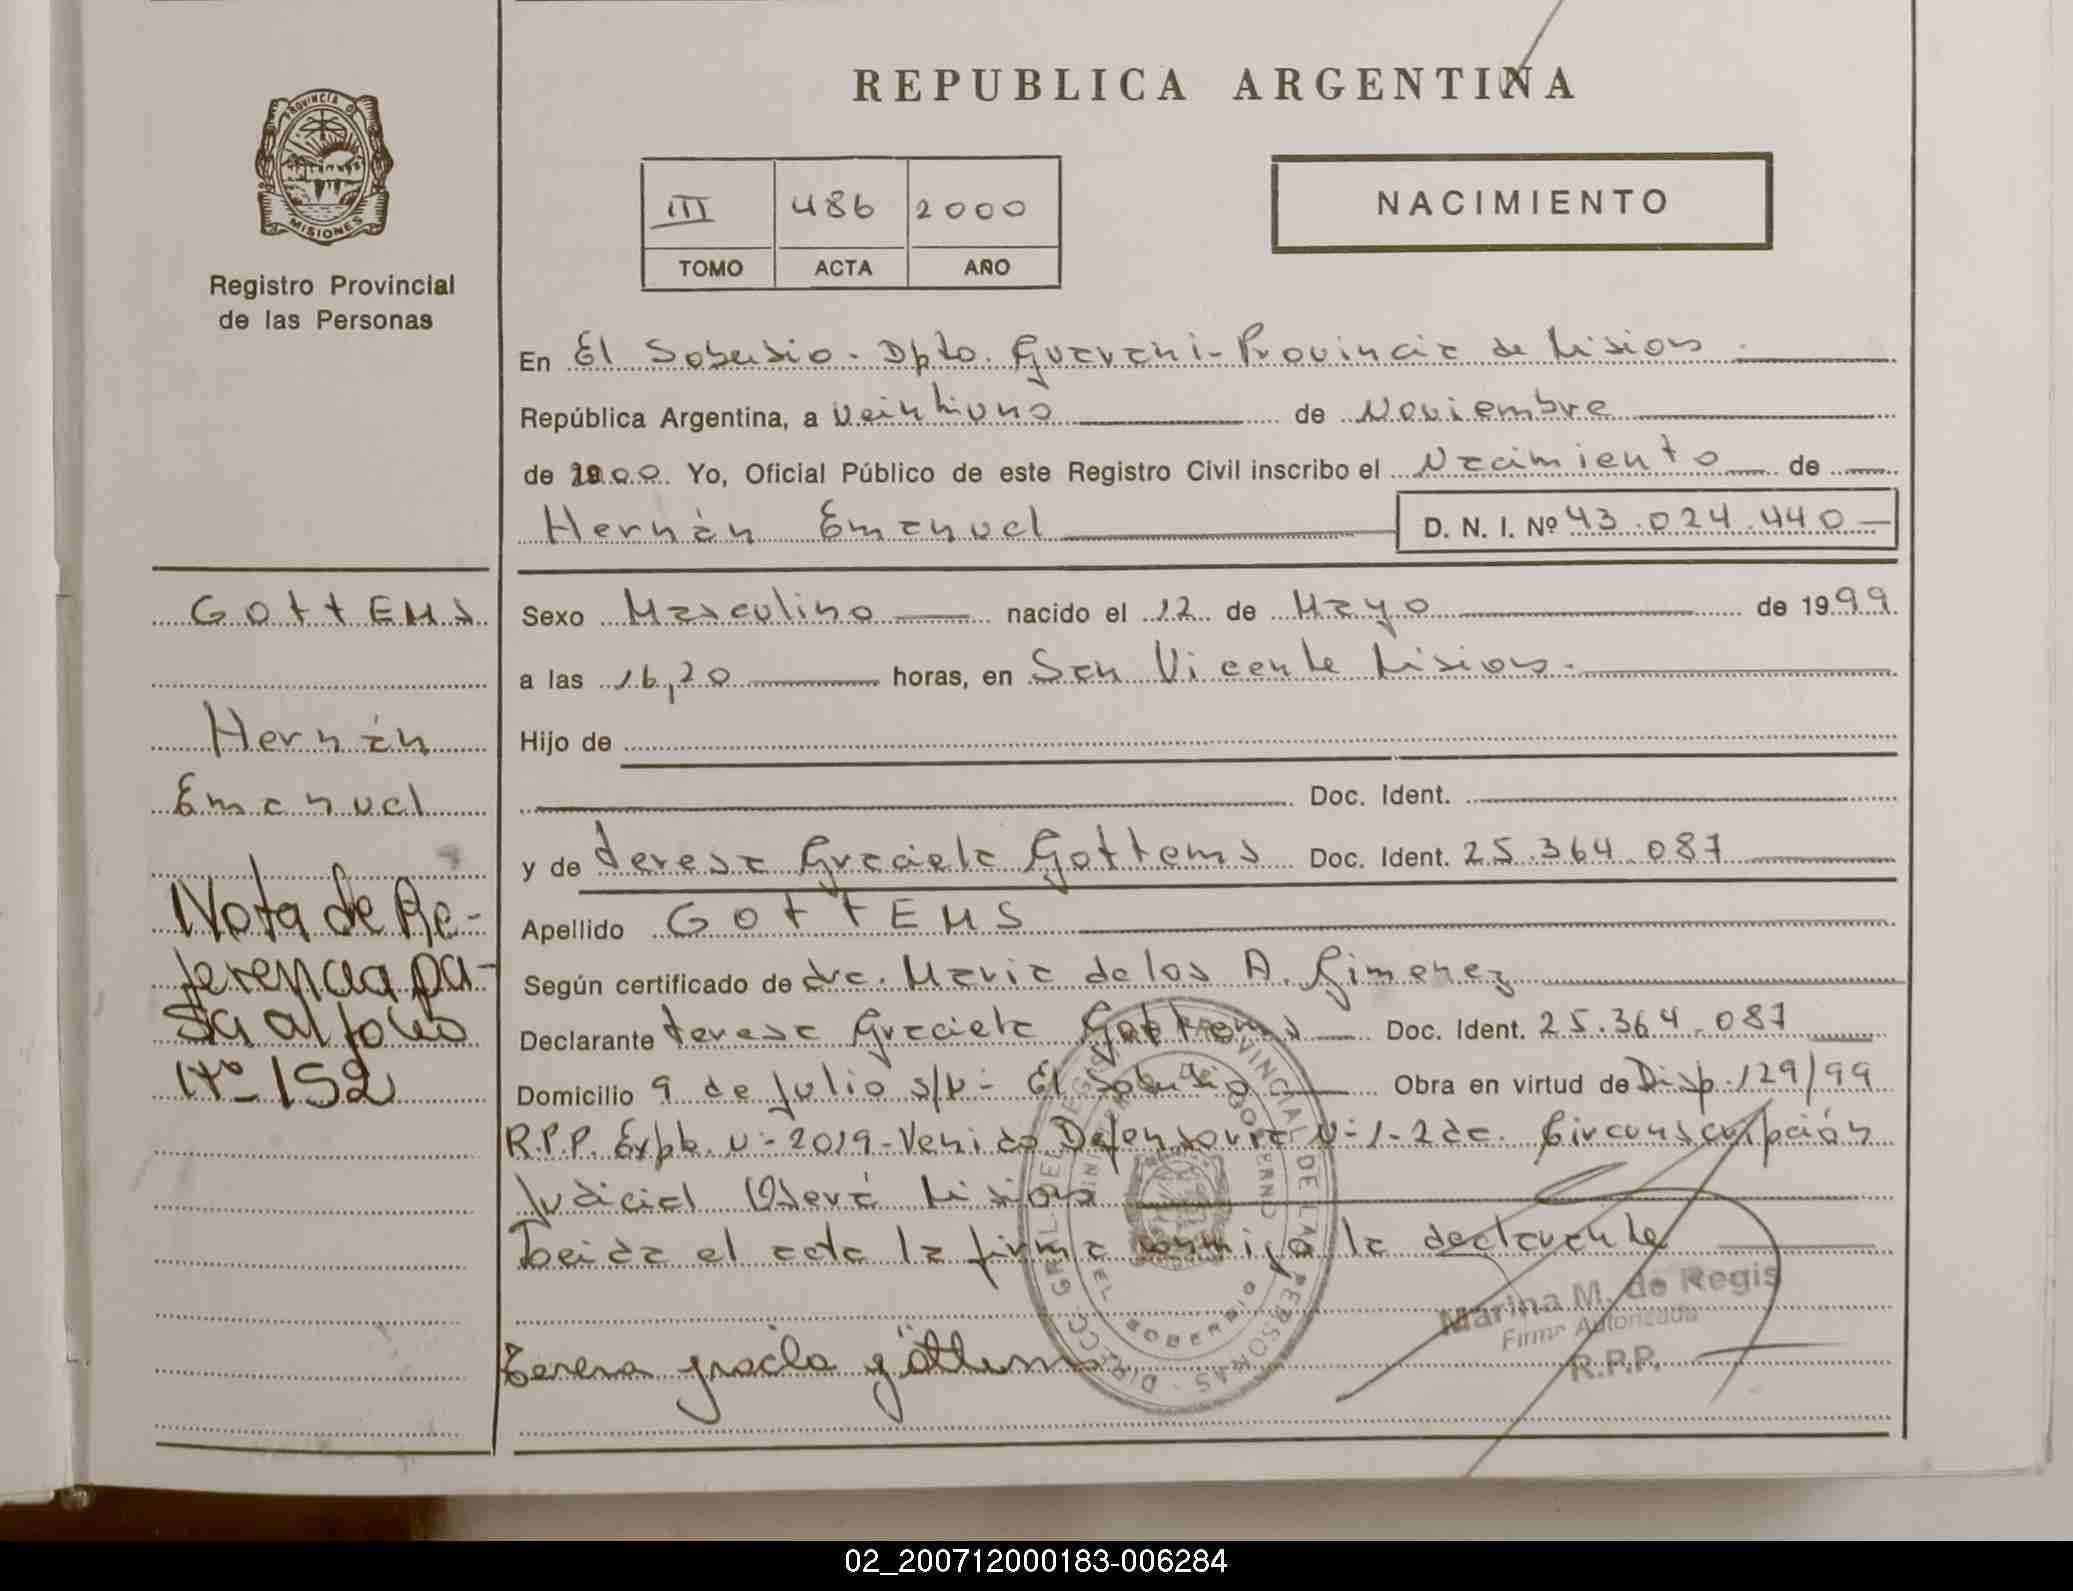 REPUBLICA ARGENTINA
PROVINCIA DE MISIONES
Registro Provincial
de las Personas
III 486 2000
TOMO ACTA AÑO
NACIMIENTO
En El Soberbio - Dpto. Guarani - Provincia de Misiones
República Argentina, a veintiuno de Noviembre
de 2000 Yo, Oficial Público de este Registro Civil inscribo el Nacimiento de
Hernán Emanuel D. N. I. Nº 43.024.440
GOttEMS
Hernán
Emanuel
Nota de Re-
ferencia pa-
sa al folio
Nº 152
Sexo Masculino nacido el 12 de Mayo de 1999
a las 16,20 horas, en San Vicente Misiones.
Hijo de
Doc. Ident.
y de Teresa Graciela Gottems Doc. Ident. 25.364.087
Apellido GOttEMS
Según certificado de dra. Maria de los A. Gimenez
Declarante Teresa Graciela Gottems Doc. Ident. 25.364.087
Domicilio 9 de Julio s/n - El Soberbio Obra en virtud de Disp. 129/99
R.P.P. Expte. Nº 2019 - Venido Defensoria Nº 1 - 2da. Circunscripción
Judicial Oberá Misiones
Leida el acta la firma conmigo la declarante
Teresa graciela göttems
DIRECC. GRAL. DEL REGISTRO PROVINCIAL DE LAS PERSONAS
EL SOBERBIO
Marina M. de Regis
Firma Autorizada
R.P.P.
02_200712000183-006284